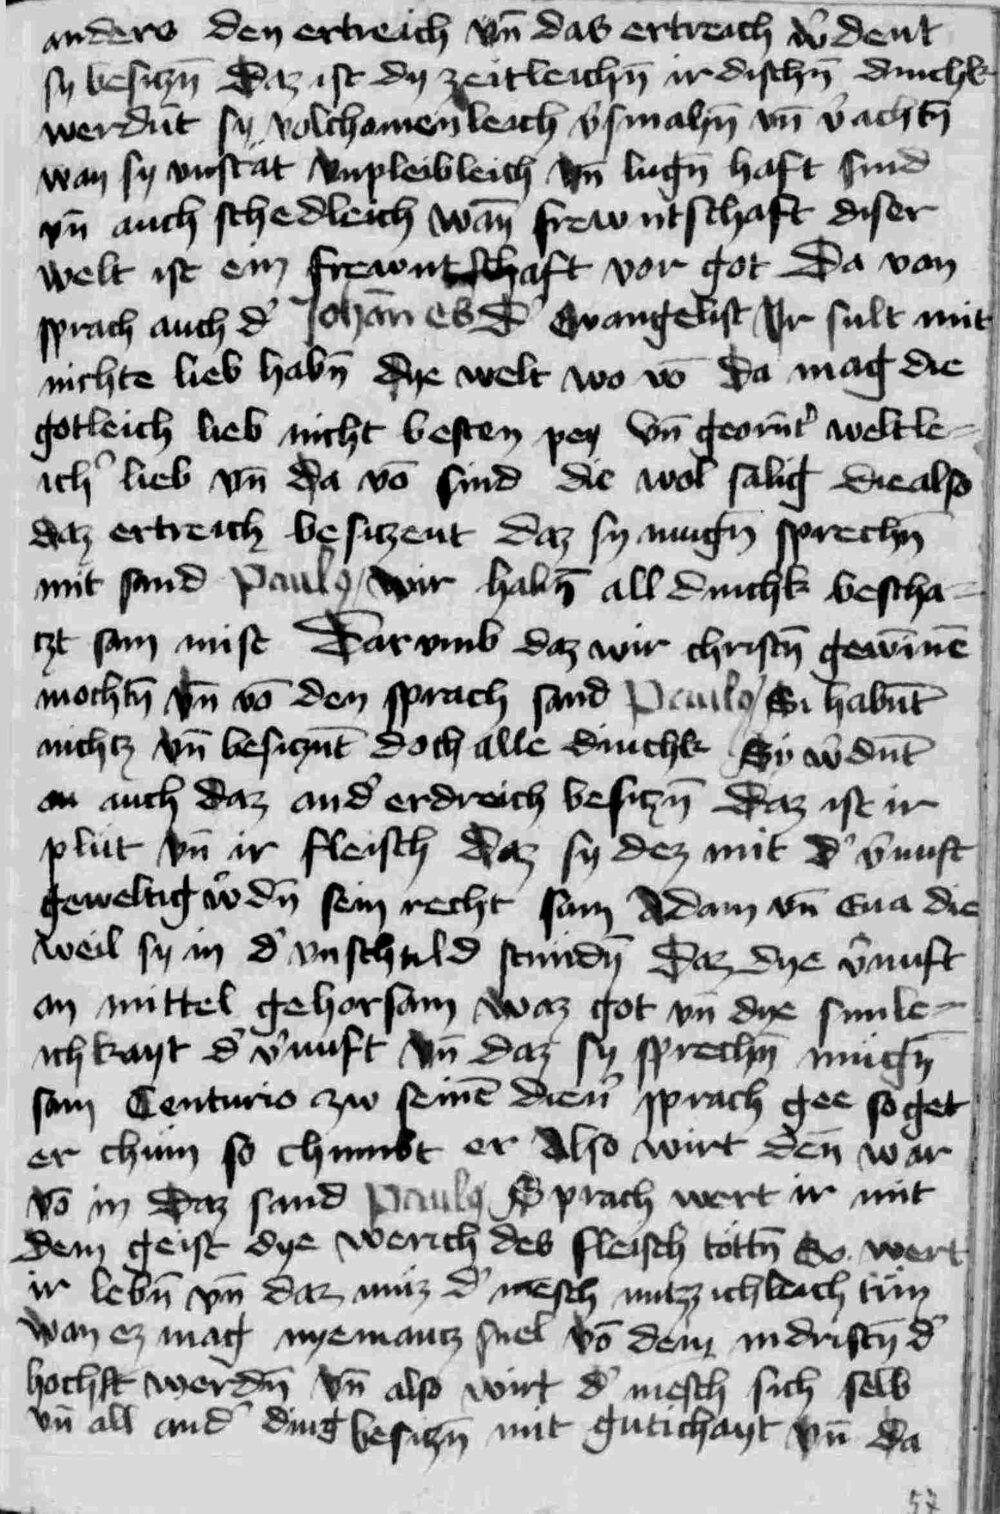 anders den ertreich vn̄ das ertreich w̓dent
sy besiczn̄ Daz ist dy zeitleichn̄ irdischn̄ dinchk
werdn̄t sy volchamenleich v̓smahn̄ vn̄ v̓achtn̄
wan sy vnstät vnpleibleich vn̄ lugn̄ haft sind
vn̄ auch schedleich wan̄ frewntschaft diser
welt ist ein frewntschaft vor got Da von
sprach auch d̓ Johān es d̓ Ewangelist Ir sult mit
nichte lieb habn̄ dye welt wo vō da mag die
gotleich lieb nicht besten pey vn̄ georn̄t̓ weltle=
ich̓ lieb vn̄ da vō sind die wol sälig die also
daz ertreich besitzent daz sy mugn̄ sprechn̄
mit sand Paulo wir habn̄ all dinchk bescha=
tzt sam mist Dar vmb daz wir christn̄ gewīnē
mochtn̄ vn̄ vō den sprach sand Paulo Si habn̄t
nichtz vn̄ besiczn̄t doch alle dinchk Sy w̓dn̄t
an auch daz and̓ erdreich besiczn̄ Daz ist ir
plüt vn̄ ir fleisch daz sy dez mit d̓ v̓nuft
geweltig w̓dn̄ sein recht sam Adam vn̄ Eua die
weil sy in d̓ vnschuld stundn̄ Daz dye v̓nuft
an mittel gehorsam waz got vn̄ dye sinle=
ichkayt d̓ v̓nuft vn̄ daz sy sprechn̄ mügn̄
sam Centurio zw seinē dien̓ sprach gee so get
er chüm so chumbt er Also wirt den̄ war
vō in daz sand Paulo Sprach wert ir mit
dem geist dye werich des fleisch töttn̄ So wert
ir lebn̄ vn̄ daz müz d̓ mēsch nutzichleich tün
wan ez mag nyemantz snel vō dem nidristn̄ d̓
hochst werdn̄ vn̄ also wirt d̓ mēsch sich selb
vn̄ all and̓ ding besiczn̄ mit gütichayt vn̄ da
57